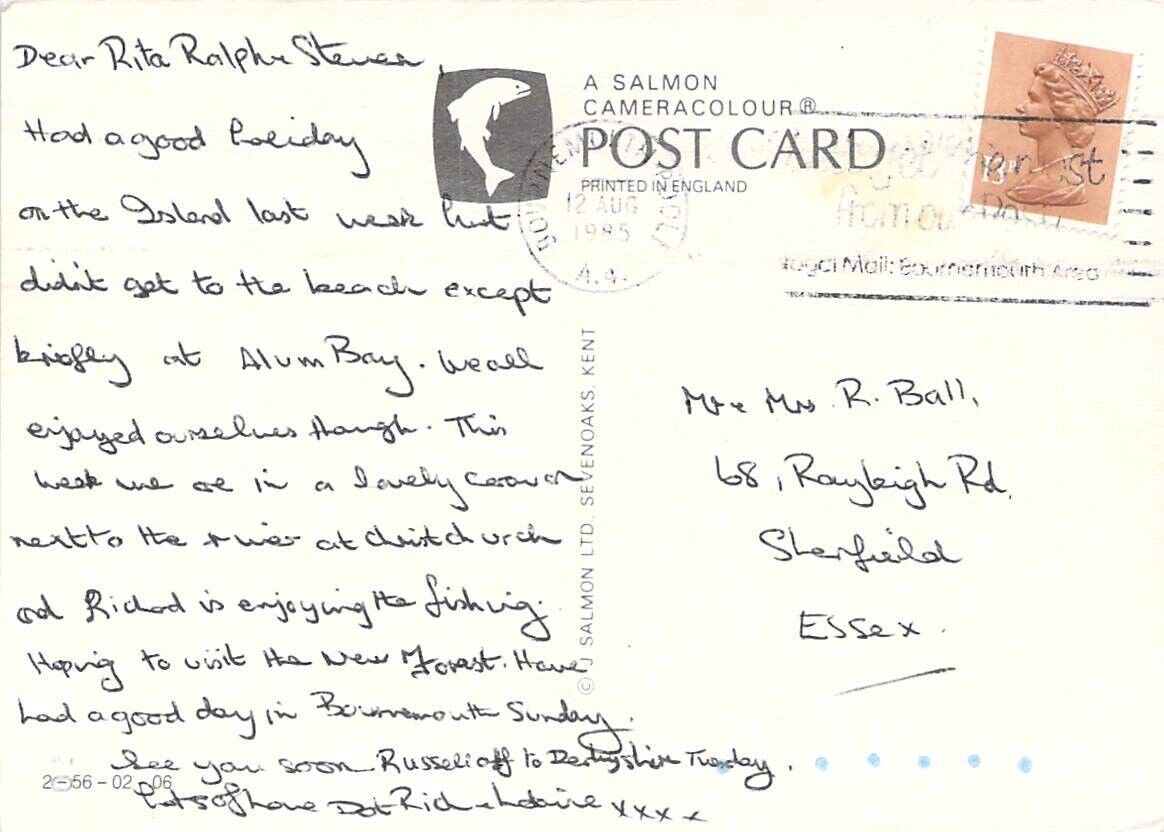 Dear Rita Ralph & Steven,
Had a good holiday
on the Island last week but
didn't get to the beach except
briefly at Alum Bay. We all
enjoyed ourselves though. This
week we are in a lovely caravan
next to the river at Christchurch
and Richard is enjoying the fishing.
Hoping to visit the New Forest. Have
had a good day in Bournemouth Sunday.
See you soon Russell off to Derbyshire Tuesday.
Lots of love Dot Rich & xxxx
2-56-02-06
A SALMON
CAMERACOLOUR®
POST CARD
PRINTED IN ENGLAND
© J SALMON LTD., SEVENOAKS, KENT
12 AUG
1985
Royal Mail: Bournemouth Area
13P
Mr & Mrs R. Ball,
68, Rayleigh Rd.
Essex.